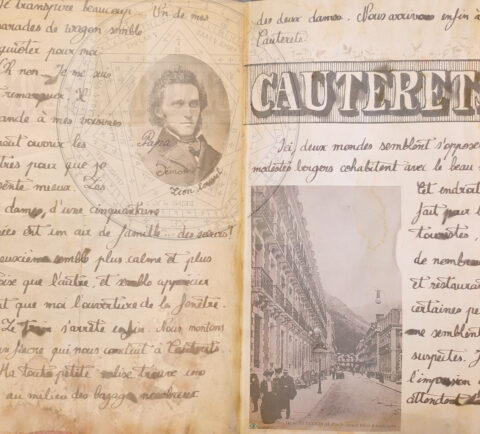 Je transpire beaucoup. Un de mes
marades de wagon semble
quiéter pour moi.
R non. Je me sus
remarquer. Il
ande à mes voisines
ouvrir les
tres pour que je
sente mieux. Les
dames, d'une cinquantaine
ées ont un air de famille... des sœurs !
euxième semble plus calme et plus
oise que l'autre, et semble apprécier
nt que moi l'ouverture de la fenêtre.
Le train s'arrête enfin. Nous montons
un fiacre qui nous conduit à Cauterets
Ma toute petite valise trouve
au milieu des bagages nombreux
Papa
Démon
des deux dames. Nous arrivons enfin à
Cauterets.
CAUTERETS
Ici, deux mondes semblent s'opposer
modestes bergers cohabitent avec le beau
Cet endroit
fait pour l
touristes,
de nombreux
et restaura
certaines pe
ne semblent
suspectes. J
l'impression
attendent